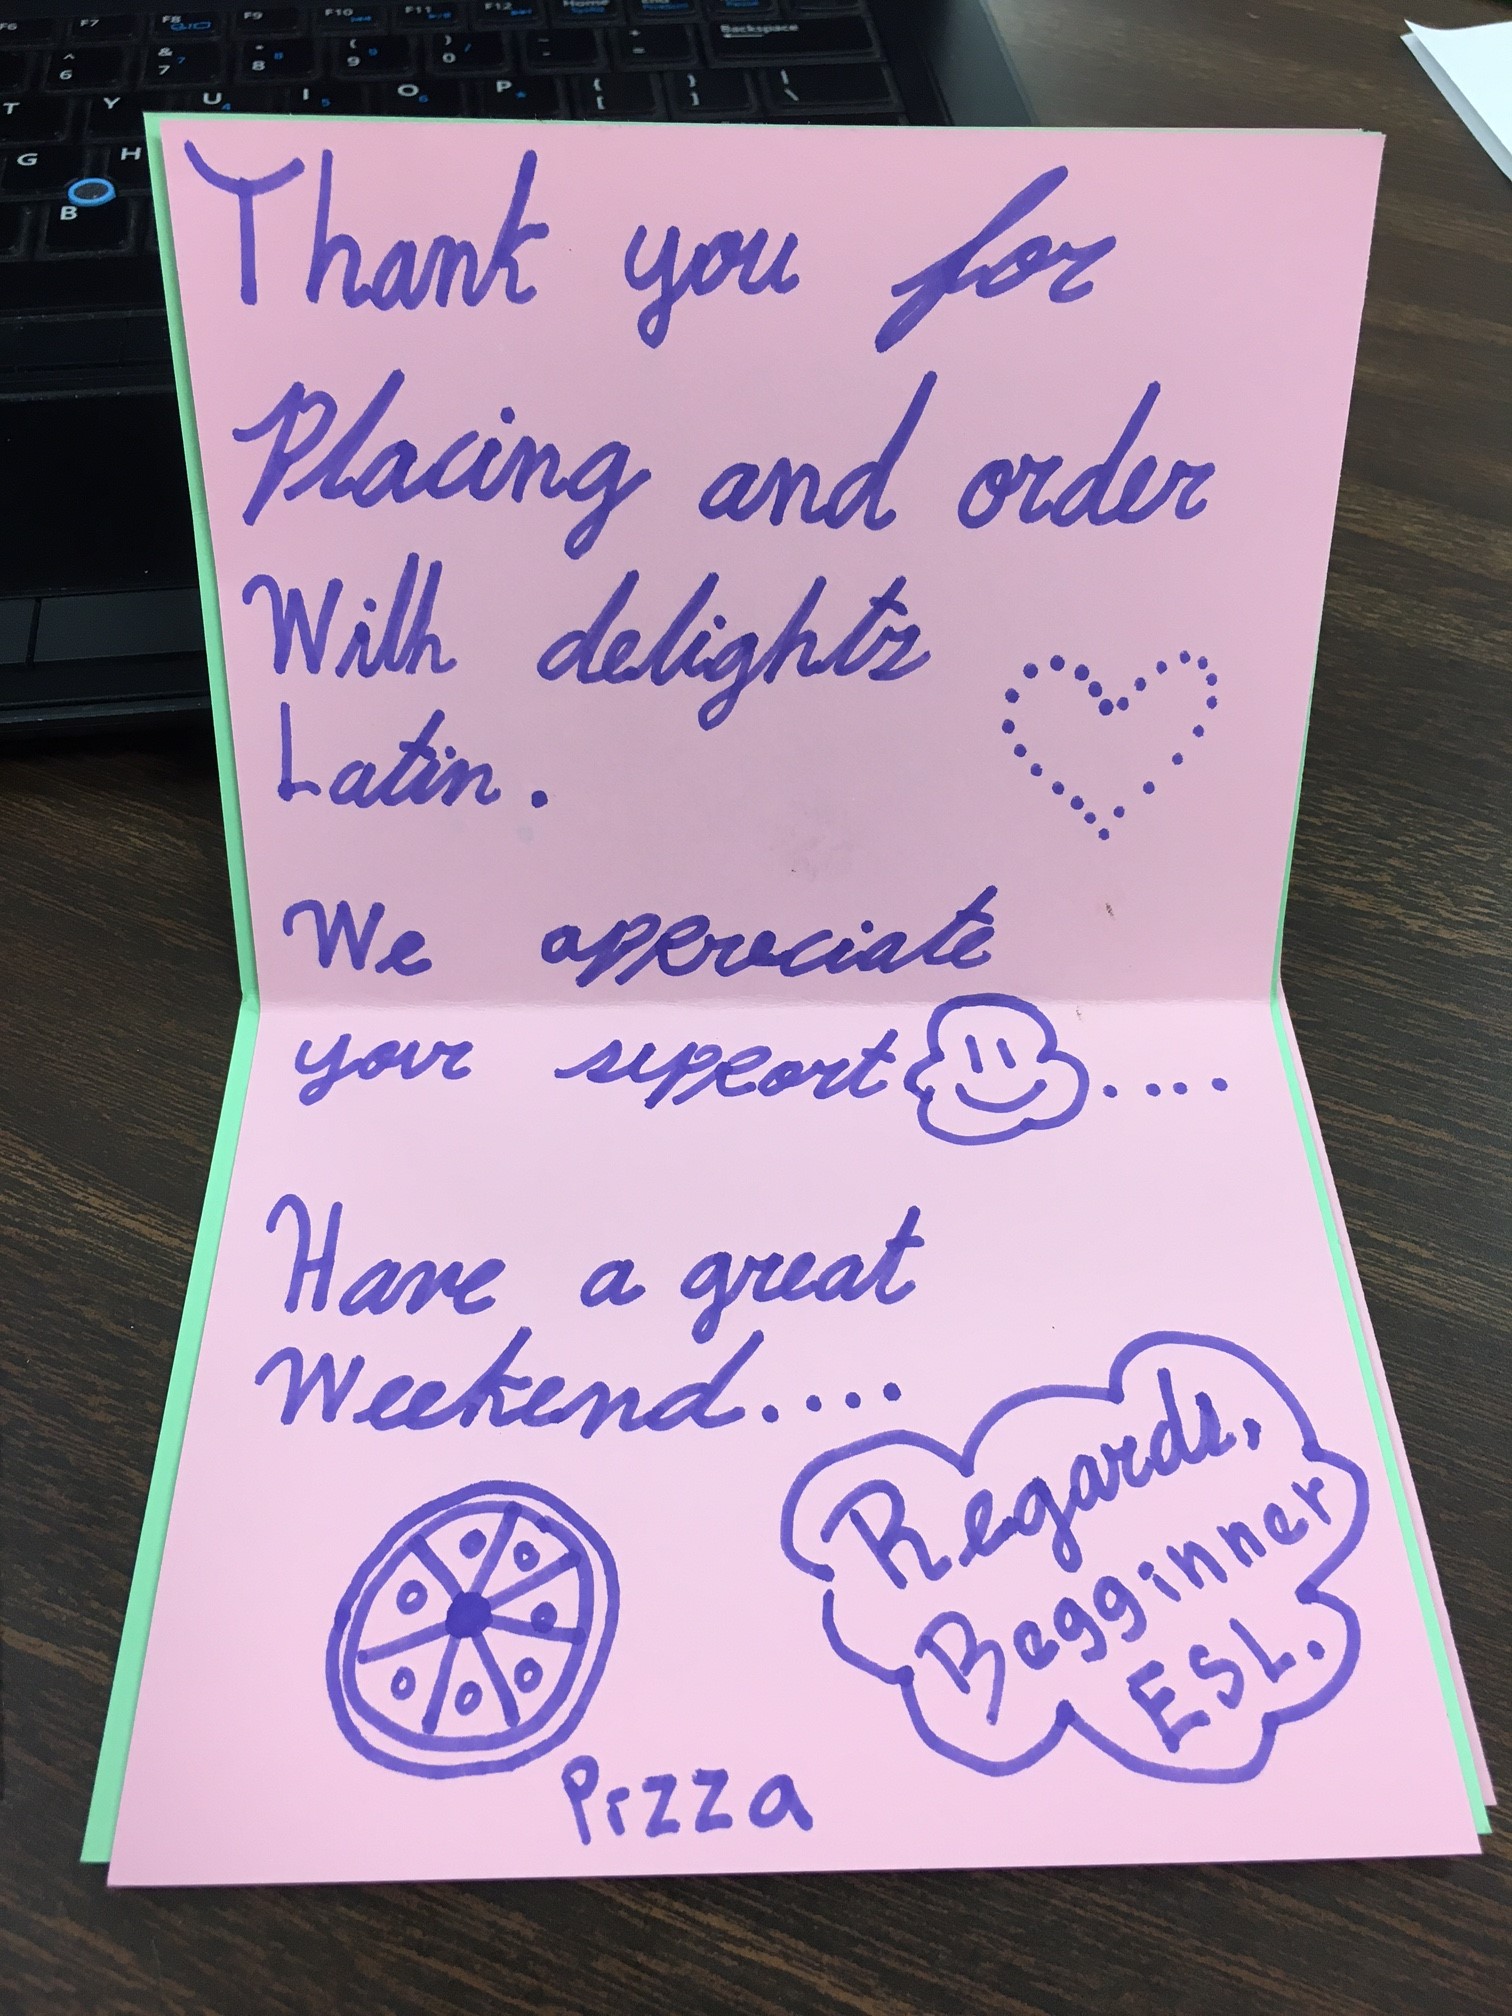 F6 F7 F8 F9 F10 F11 F12 Home End
^ 6 & 7 7 * 8 8 ( 9 9 ) 0 / - + = Backspace
T Y U 4 I 5 O 6 P * { [ } ] | \
G H
B
Thank you for
Placing and order
With delights
Latin.
We appreciate
your support ....
Have a great
Weekend....
Regards,
Begginner
ESL.
Pizza